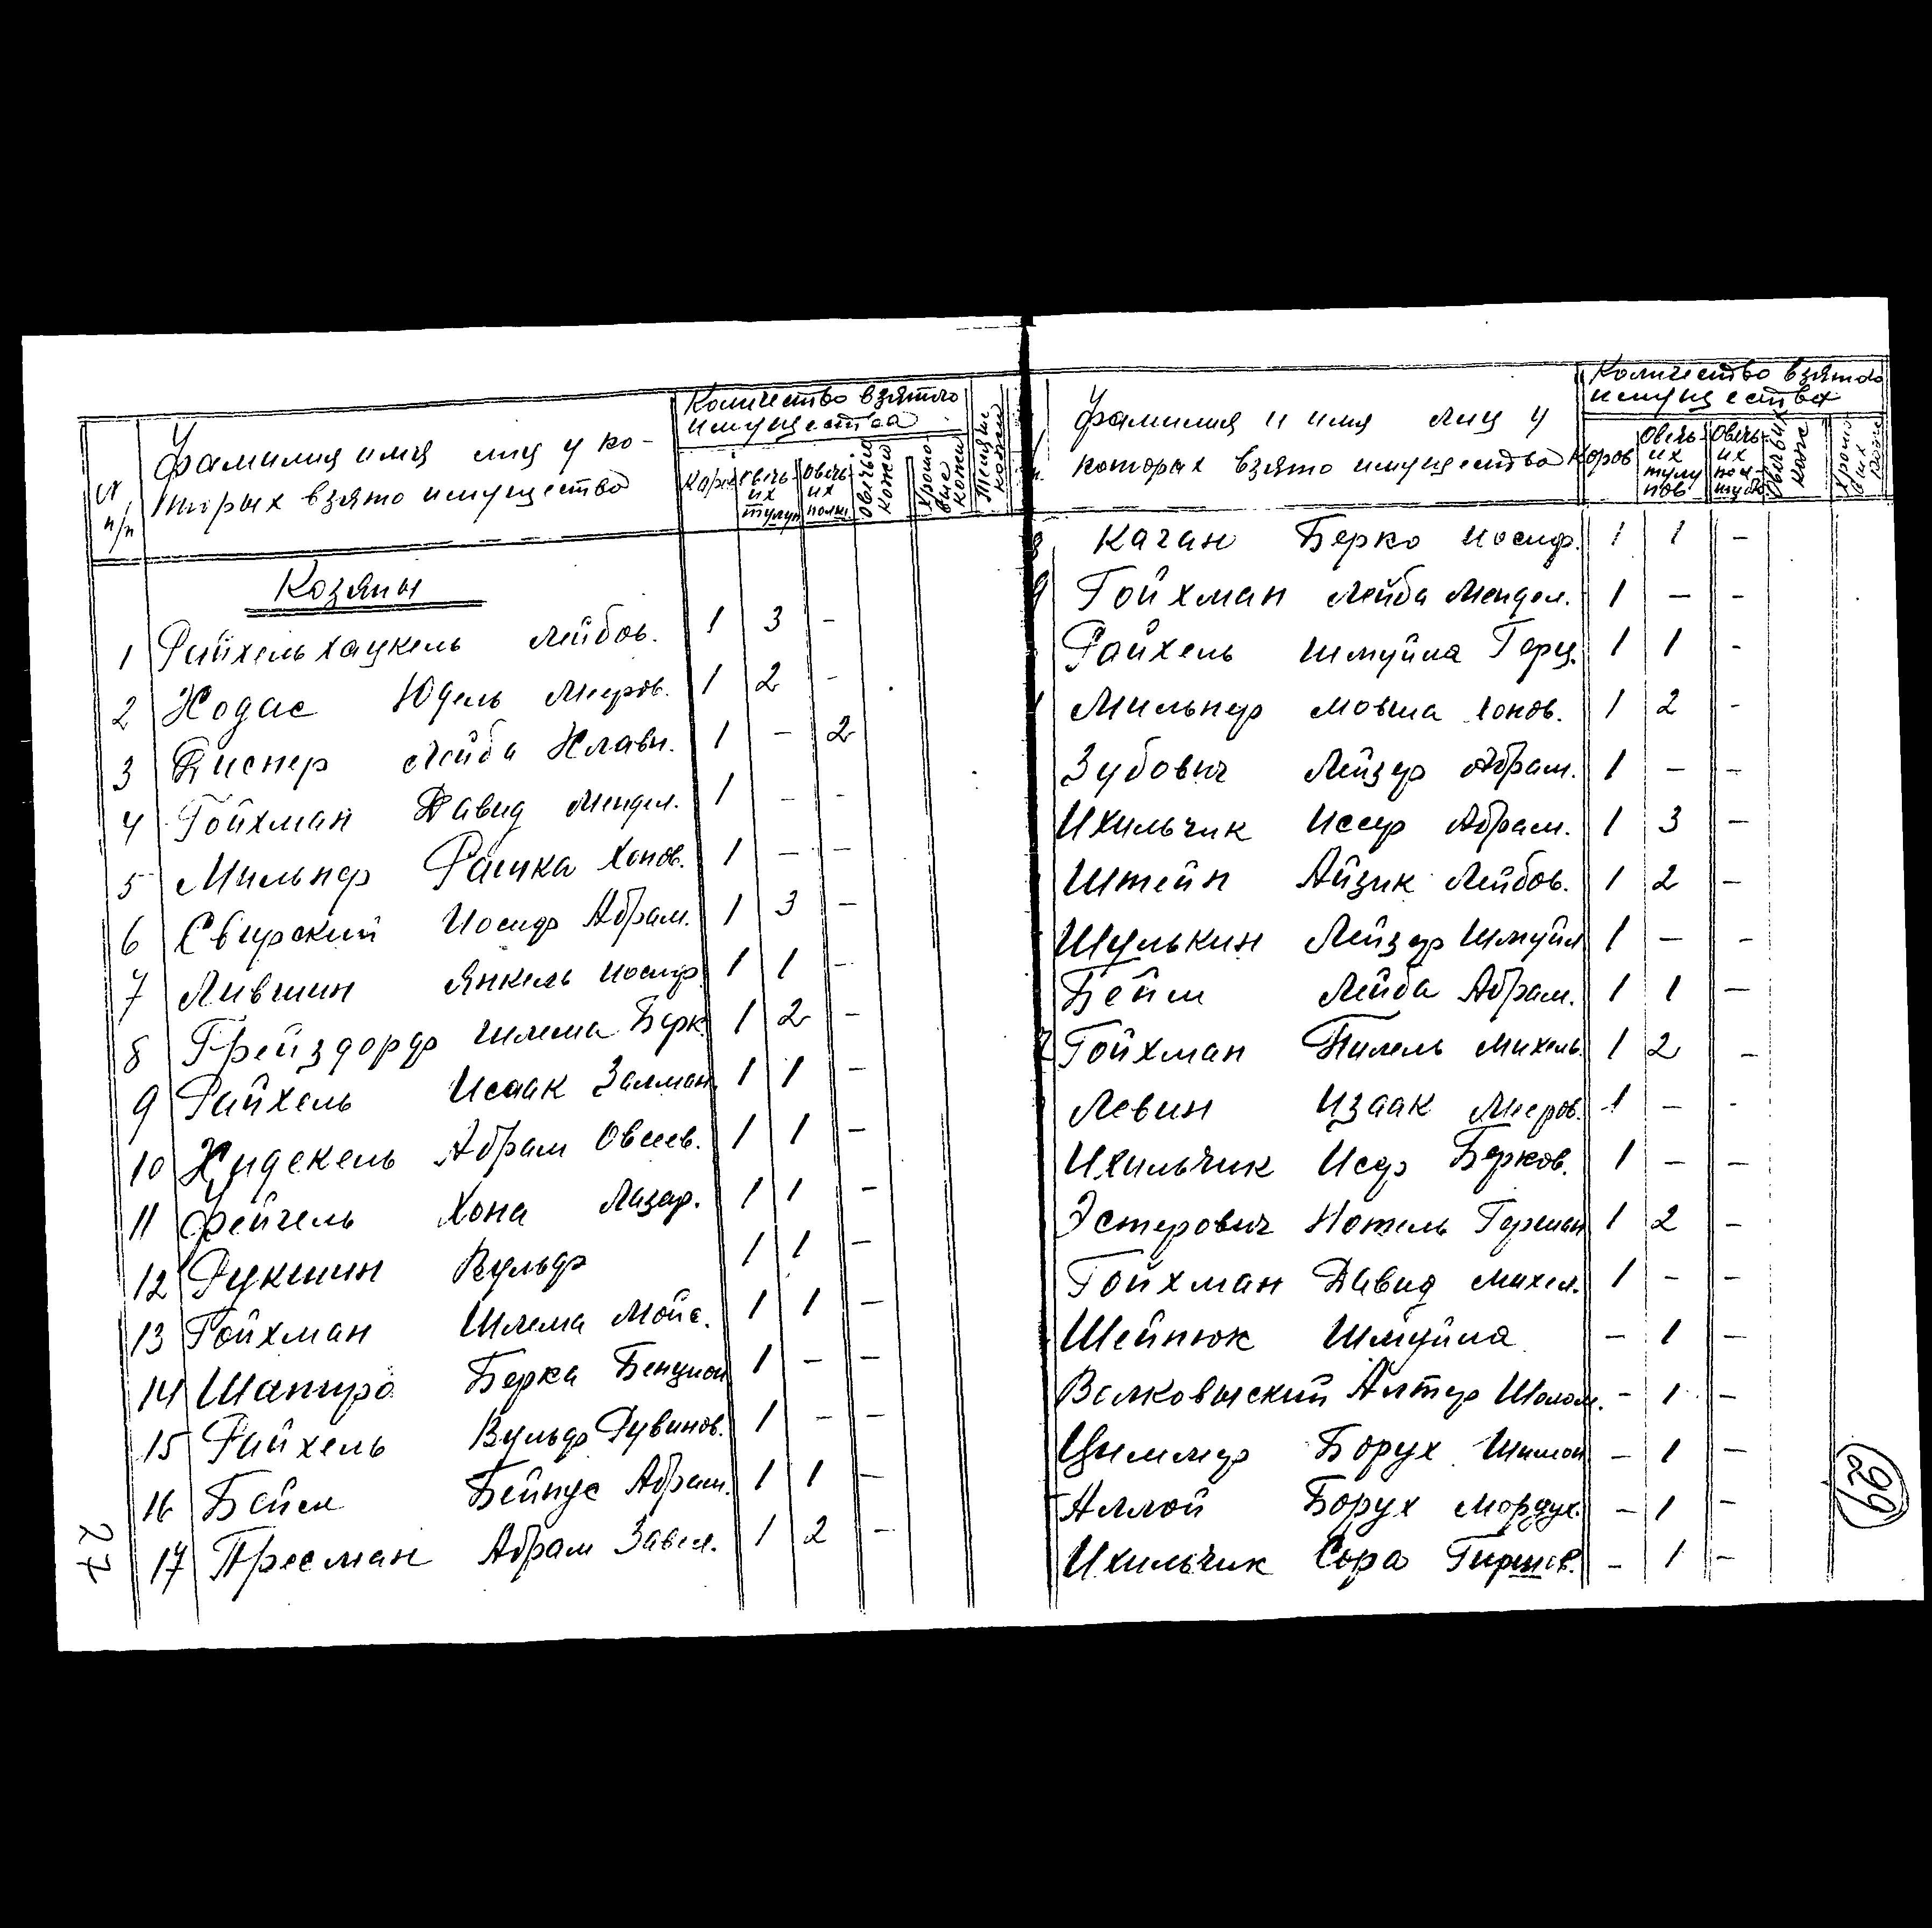 № п/п
Фамилия имя лиц у ко-
торых взято имущество
Количество взятого
имущества
Коров
Овечь-
их
тулуп
Овечь-
их
Овечьи
кожи
Хромо-
вые
кожи
кожи
Козяны
1 Райхель Хацкель Лейбов. 1 3 -
2 Ходас Юдель Мееров. 1 2 -
3 Лейба 1 - 2
4 Гойхман Давид Мендел. 1 - -
5 Мильнер Рашка Хонов. 1 - -
6 Свирский Иосиф Абрам. 1 3 -
7 Лившин Янкель Иосиф. 1 1 -
8 Грейздорф Шлема Берк. 1 2 -
9 Райхель Исаак Залман. 1 1 -
10 Хидекель Абрам Овсеев. 1 1 -
11 Фейгель Хона Лазер. 1 1 -
12 Рукшин Вульф 1 1 -
13 Гойхман Шлема Мойс. 1 1 -
14 Шапиро Берка Бенцион 1 - -
15 Райхель Вульф Рувинов. 1 - -
16 Бейм Бейнус Абрам. 1 1 -
17 Пресман Абрам Завел. 1 2 -
27
Фамилия и имя лиц у
которых взято имущество
Количество взятого
имущества
Коров
Овечь-
их
тулу
пов
Овечь-
их
Овечьих
кож
Хромо-
вых
кож
8 Каган Берко Иосиф. 1 1 -
9 Гойхман Лейба Мендел. 1 - -
Райхель Шмуйла Герц. 1 1 -
1 Мильнер Мовша Хонов. 1 2 -
Зубович Лейзер Абрам. 1 - -
Ихильчик Иссер Абрам. 1 3 -
Штейн Айзик Лейбов. 1 2 -
Шулькин Лейзер Шмуйл 1 - -
Бейм Лейба Абрам. 1 1 -
Гойхман Гилель Михель. 1 2 -
Левин Изаак Мееров. 1 - -
Ихильчик Исер Берков. 1 - -
Эстерович Нотель Герман 1 2 -
Гойхман Давид Михел. 1 - -
Шейнюк Шмуйла - 1 -
Волковыский Алтер Шолом. - 1 -
Циммер Борух Шимон - 1 -
Аллой Борух Мордух. - 1 -
Ихильчик Сора Гиршев. - 1 -